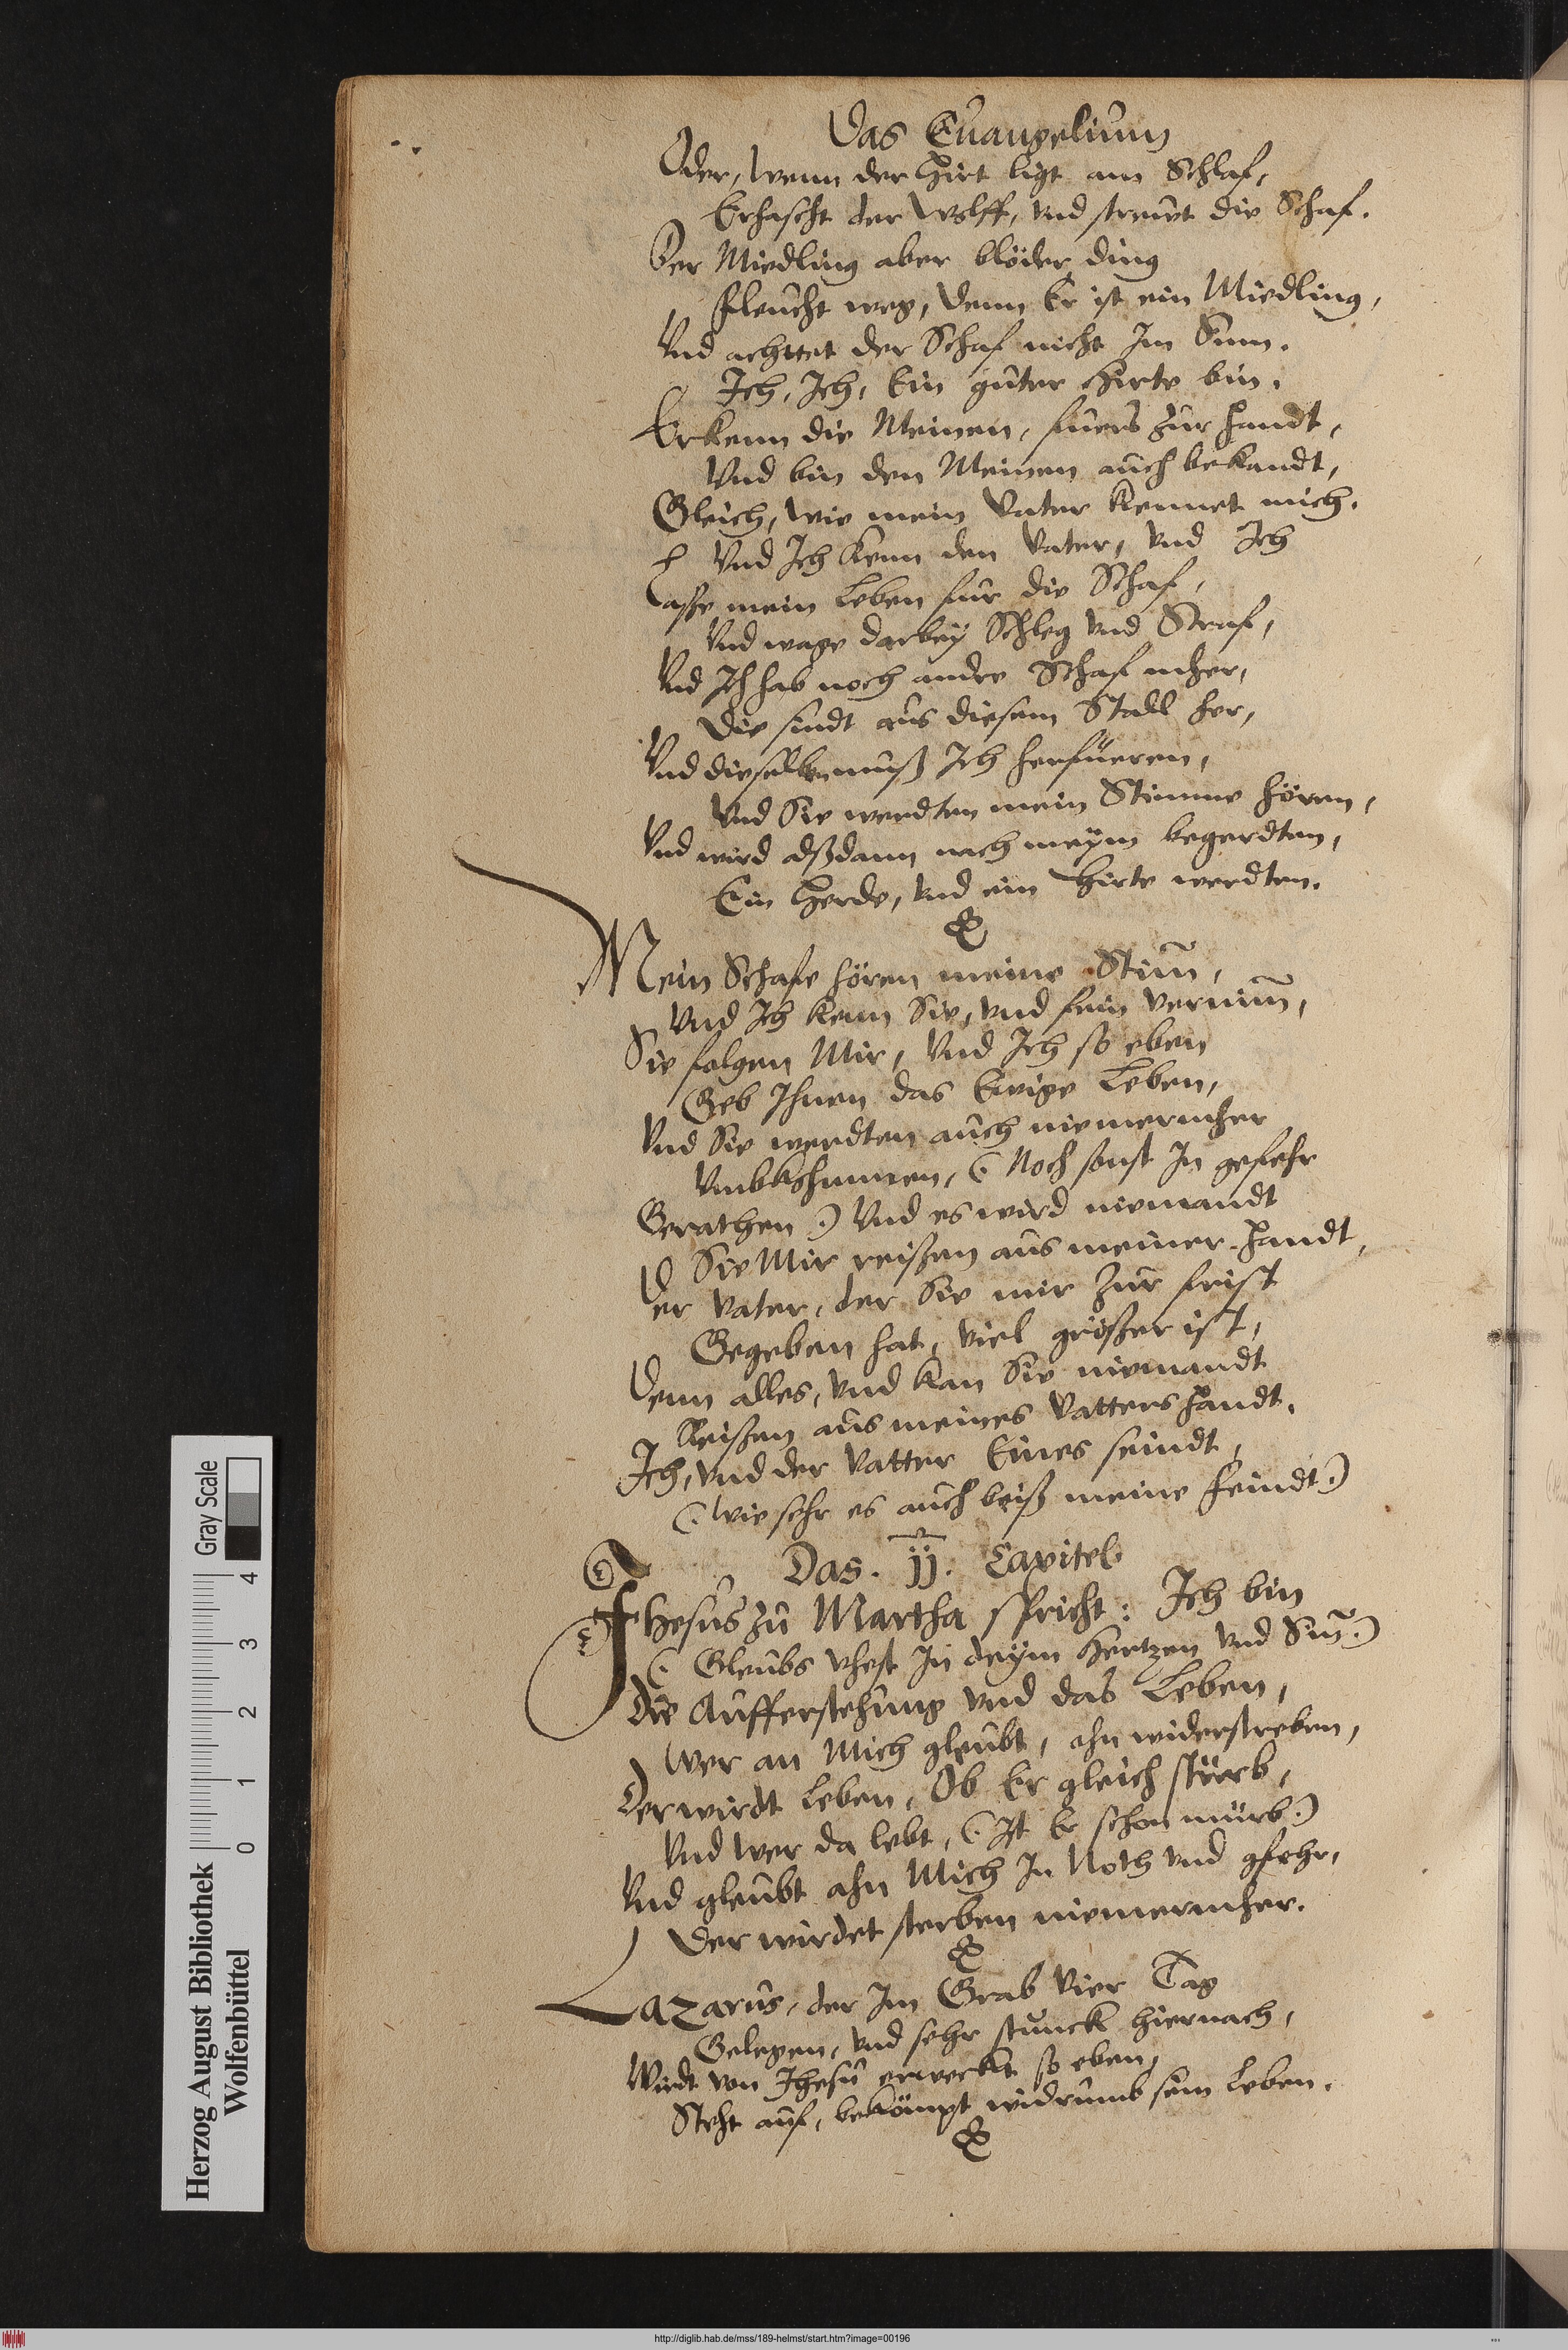 Das Euangelium
Oder, wenn der Hirt ligt am Schlaf,
Erhascht der Wolff, vnd strewt die Schaf.
Der Miedling aber blöder ding
Fleucht weg, denn Er ist ein Miedling,
Vnd achttet der Schaf nicht Im Sinn.
Ich, Ich, Ein guter Hirte bin.
Erkenn die Meinen, fuers zur Handt,
Vnd bin den Meinen auch bekandt,
Gleich, wie mein Vater kennet mich.
Vnd Ich kenn den Vater, vnd Ich
Lasse mein Leben fur die Schaf,
Vnd wage darbey Schleg vnd Straf,
Vnd Ich hab noch andre Schaf mher,
Die sindt aus diesem Stall her,
Vnd dieselben muß Ich herfüeren,
Vnd Sie werdten mein Stimme hören,
Vnd wird alßdann nach meym begerdten,
Ein Herde, vnd ein Hirte werdten.
Mein Schafe hören meine Stim̃,
Vnd Ich kenn Sie, vnd fein vernim̃,
Sie folgen Mir, Vnd Ich so eben
Geb Ihnen das Ewige Leben,
Vnd Sie werdten auch niemermher
Vmbkhommen, (. Noch sonst In gefehr
Gerathen .) Vnd es wird niemandt
Sie Mir reissen aus meiner Handt,
Der Vater, der Sie mir zur frist
Gegeben hat, viel grösser ist,
Denn alles, vnd kan Sie niemandt
Reissen aus meines Vatters Handt.
Ich, vnd der Vatter Eines seindt,
(. Wie sehr es auch beiß meine Feindt .)
Das . 11 . Capitel
Jhesus zu Martha spricht: Ich bin
(. Gleubs vhest In deym Hertzen vnd Sin̄ .)
Die Aufferstehung vnd das Leben,
Wer an Mich gleubt, ohn widerstreben,
Der wirdt Leben, Ob Er gleich stürb,
Vnd wer da lebt, (. Ist Er schon mürb .)
Vnd gleubt ahn Mich In Noth vnd gfehr,
Der wirdet sterben niemermher.
Lazarus, der Im Grab vier Tag
Gelegen, vnd sehr stunck hiernach,
Wirdt von Jhesu erweckt so eben,
Steht auf, bekömpt widrumb sein Leben.
Herzog August Bibliothek
Wolfenbüttel
0 1 2 3 4
Gray Scale
http://diglib.hab.de/mss/189-helmst/start.htm?image=00196